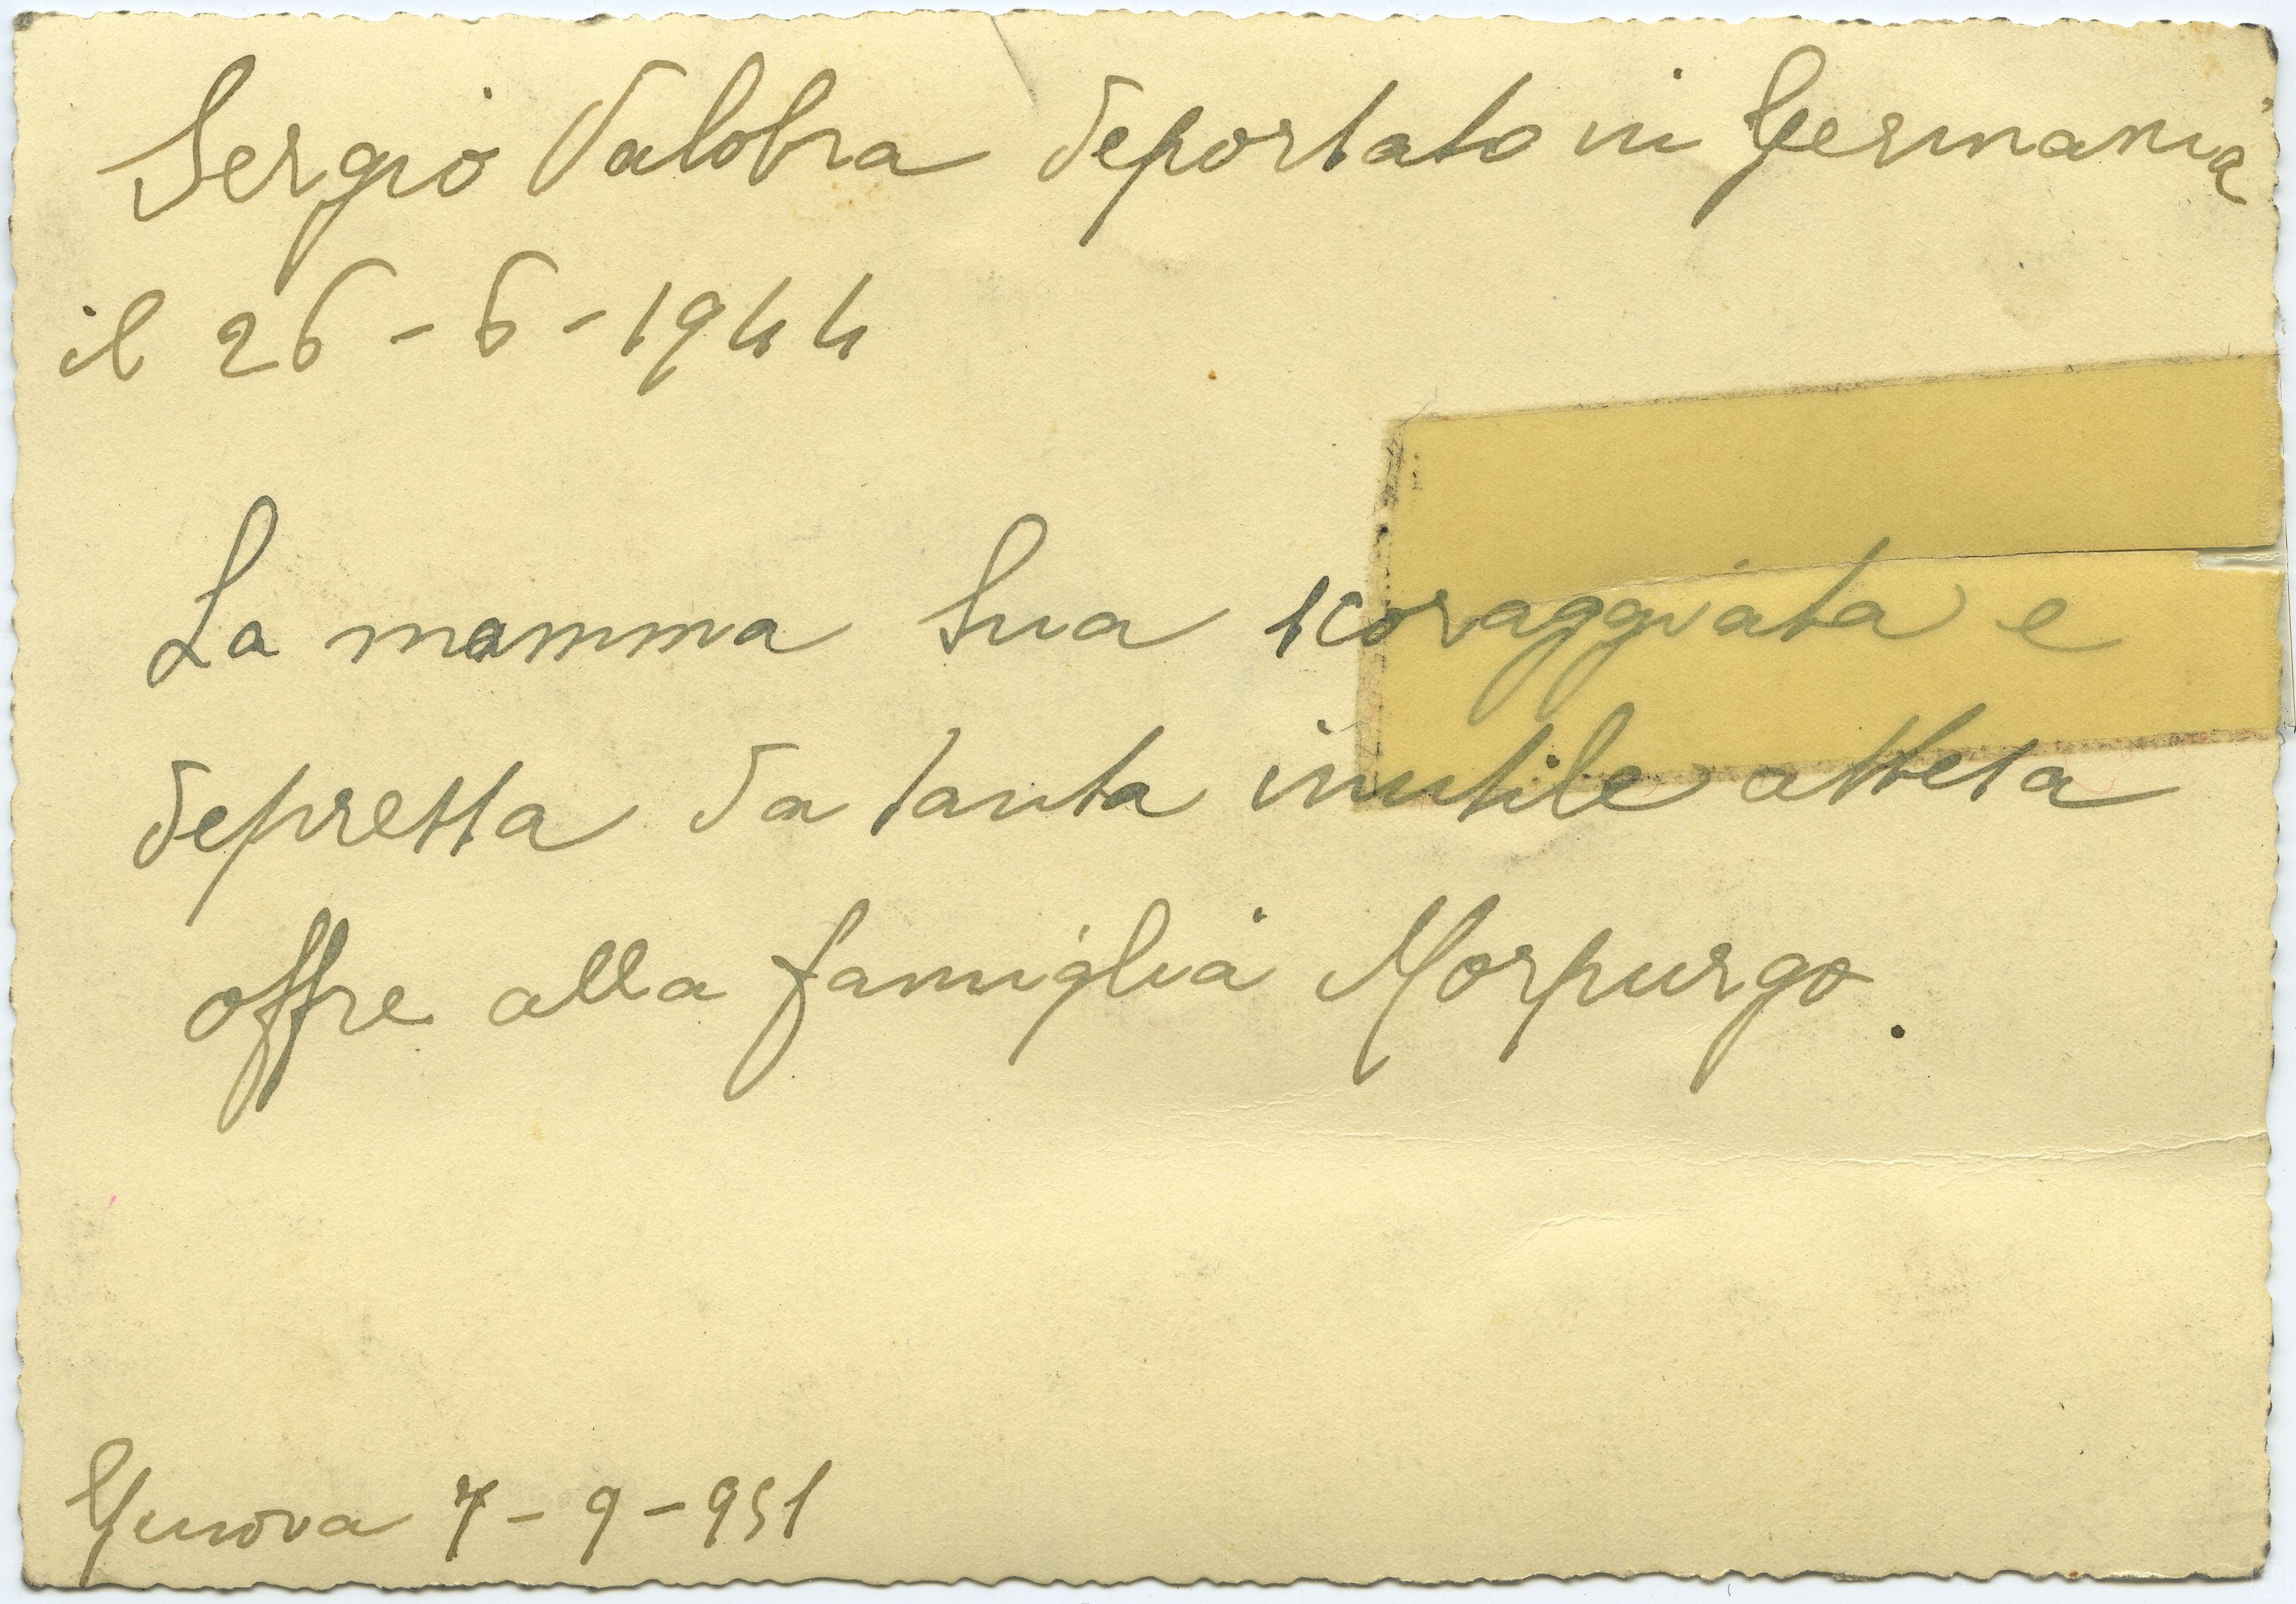 Sergio Valobra deportato in Germania
il 26-6-1944
La mamma Sua scoraggiata e
depressa da tanta inutile attesa
offre alla famiglia Morpurgo.
Genova 7-9-951